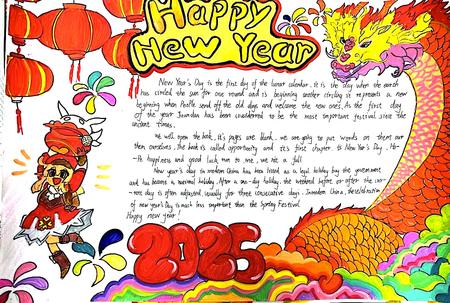 Happy
New Year
New Year's Day is the first day of the lunar calendar, it is the day when the earth
has circled the sun for one round and is beginning another circling it represents a new
beginning when People send off the old days and welcome the new ones. As the first day
of the year Yuandan has been considered to be the most important festival since the
ancient times.
we will open the book, it's pages are blank. we are going to put words on them our
them ourselves. the book is called opportunity and it's first chapter is New Year's Day.
happiness and good luck
New year's day in modern China has been listed as a legal holiday by the government
and has become a national holiday. After a one-day holiday, the weekend before or after the
day is often adjusted, usually for three consecutive days. In modern China, the celebration
of new year's day is much less important than the Spring Festival
Happy new year!
2025